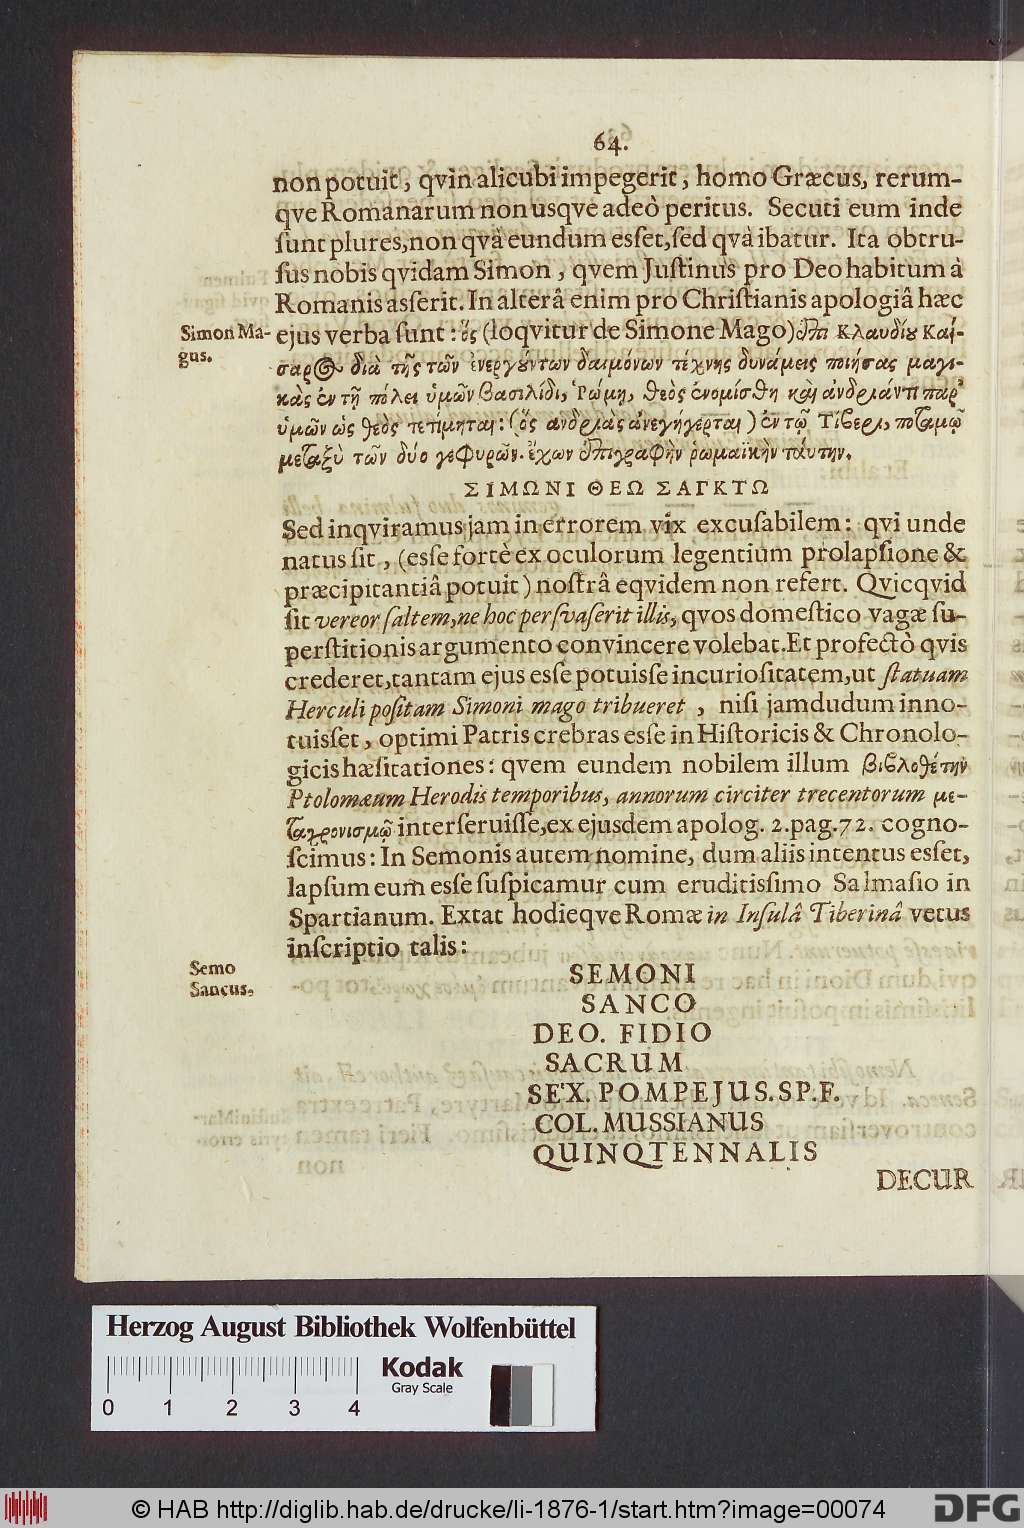 64.
non potuit, qvin alicubi impegerit, homo Græcus, rerum-
qve Romanarum non usqve adeò peritus. Secuti eum inde
sunt plures, non qvà eundum esset, sed qvà ibatur. Ita obtru-
sus nobis qvidam Simon, qvem Justinus pro Deo habitum à
Romanis asserit. In alterâ enim pro Christianis apologiâ hæc
Simon Ma-
gus.
ejus verba sunt: ὅς (loqvitur de Simone Mago) ἐπὶ Κλαυδίου Καί-
σαρος διὰ τῆς τῶν ἐνεργούντων δαιμόνων τέχνης δυνάμεις ποιήσας μαγι-
κὰς ἐν τῇ πόλει ὑμῶν βασιλίδι, Ῥώμῃ, θεὸς ἐνομίσθη καὶ ἀνδριάντι παρ'
ὑμῶν ὡς θεὸς τετίμηται: (ὅς ἀνδριὰς ἀνεγήγερται) ἐν τῷ Τίβερι, ποταμῷ
μεταξὺ τῶν δύο γεφυρῶν. ἔχων ἐπιγραφὴν ῥωμαϊκὴν ταύτην.
ΣΙΜΩΝΙ ΘΕΩ ΣΑΓΚΤΩ
Sed inqviramus jam in errorem vix excusabilem: qvi unde
natus sit, (esse fortè ex oculorum legentium prolapsione &
præcipitantiâ potuit) nostrâ eqvidem non refert. Qvicqvid
sit vereor saltem, ne hoc persvaserit illis, qvos domestico vagæ su-
perstitionis argumento convincere volebat. Et profectò qvis
crederet, tantam ejus esse potuisse incuriositatem, ut statuam
Herculi positam Simoni mago tribueret, nisi jamdudum inno-
tuisset, optimi Patris crebras esse in Historicis & Chronolo-
gicis hæsitationes: qvem eundem nobilem illum βιβλοθέτην
Ptolomæum Herodis temporibus, annorum circiter trecentorum με-
ταχρονισμῷ interseruisse, ex ejusdem apolog. 2. pag. 72. cogno-
scimus: In Semonis autem nomine, dum aliis intentus esset,
lapsum eum esse suspicamur cum eruditissimo Salmasio in
Spartianum. Extat hodieqve Romæ in Insulâ Tiberinâ vetus
inscriptio talis:
Semo
Sancus.
SEMONI
SANCO
DEO. FIDIO
SACRUM
SEX. POMPEJUS. SP. F.
COL. MUSSIANUS
QUINQTENNALIS
DECUR
Herzog August Bibliothek Wolfenbüttel
Kodak
Gray Scale
0 1 2 3 4
© HAB http://diglib.hab.de/drucke/li-1876-1/start.htm?image=00074
DFG